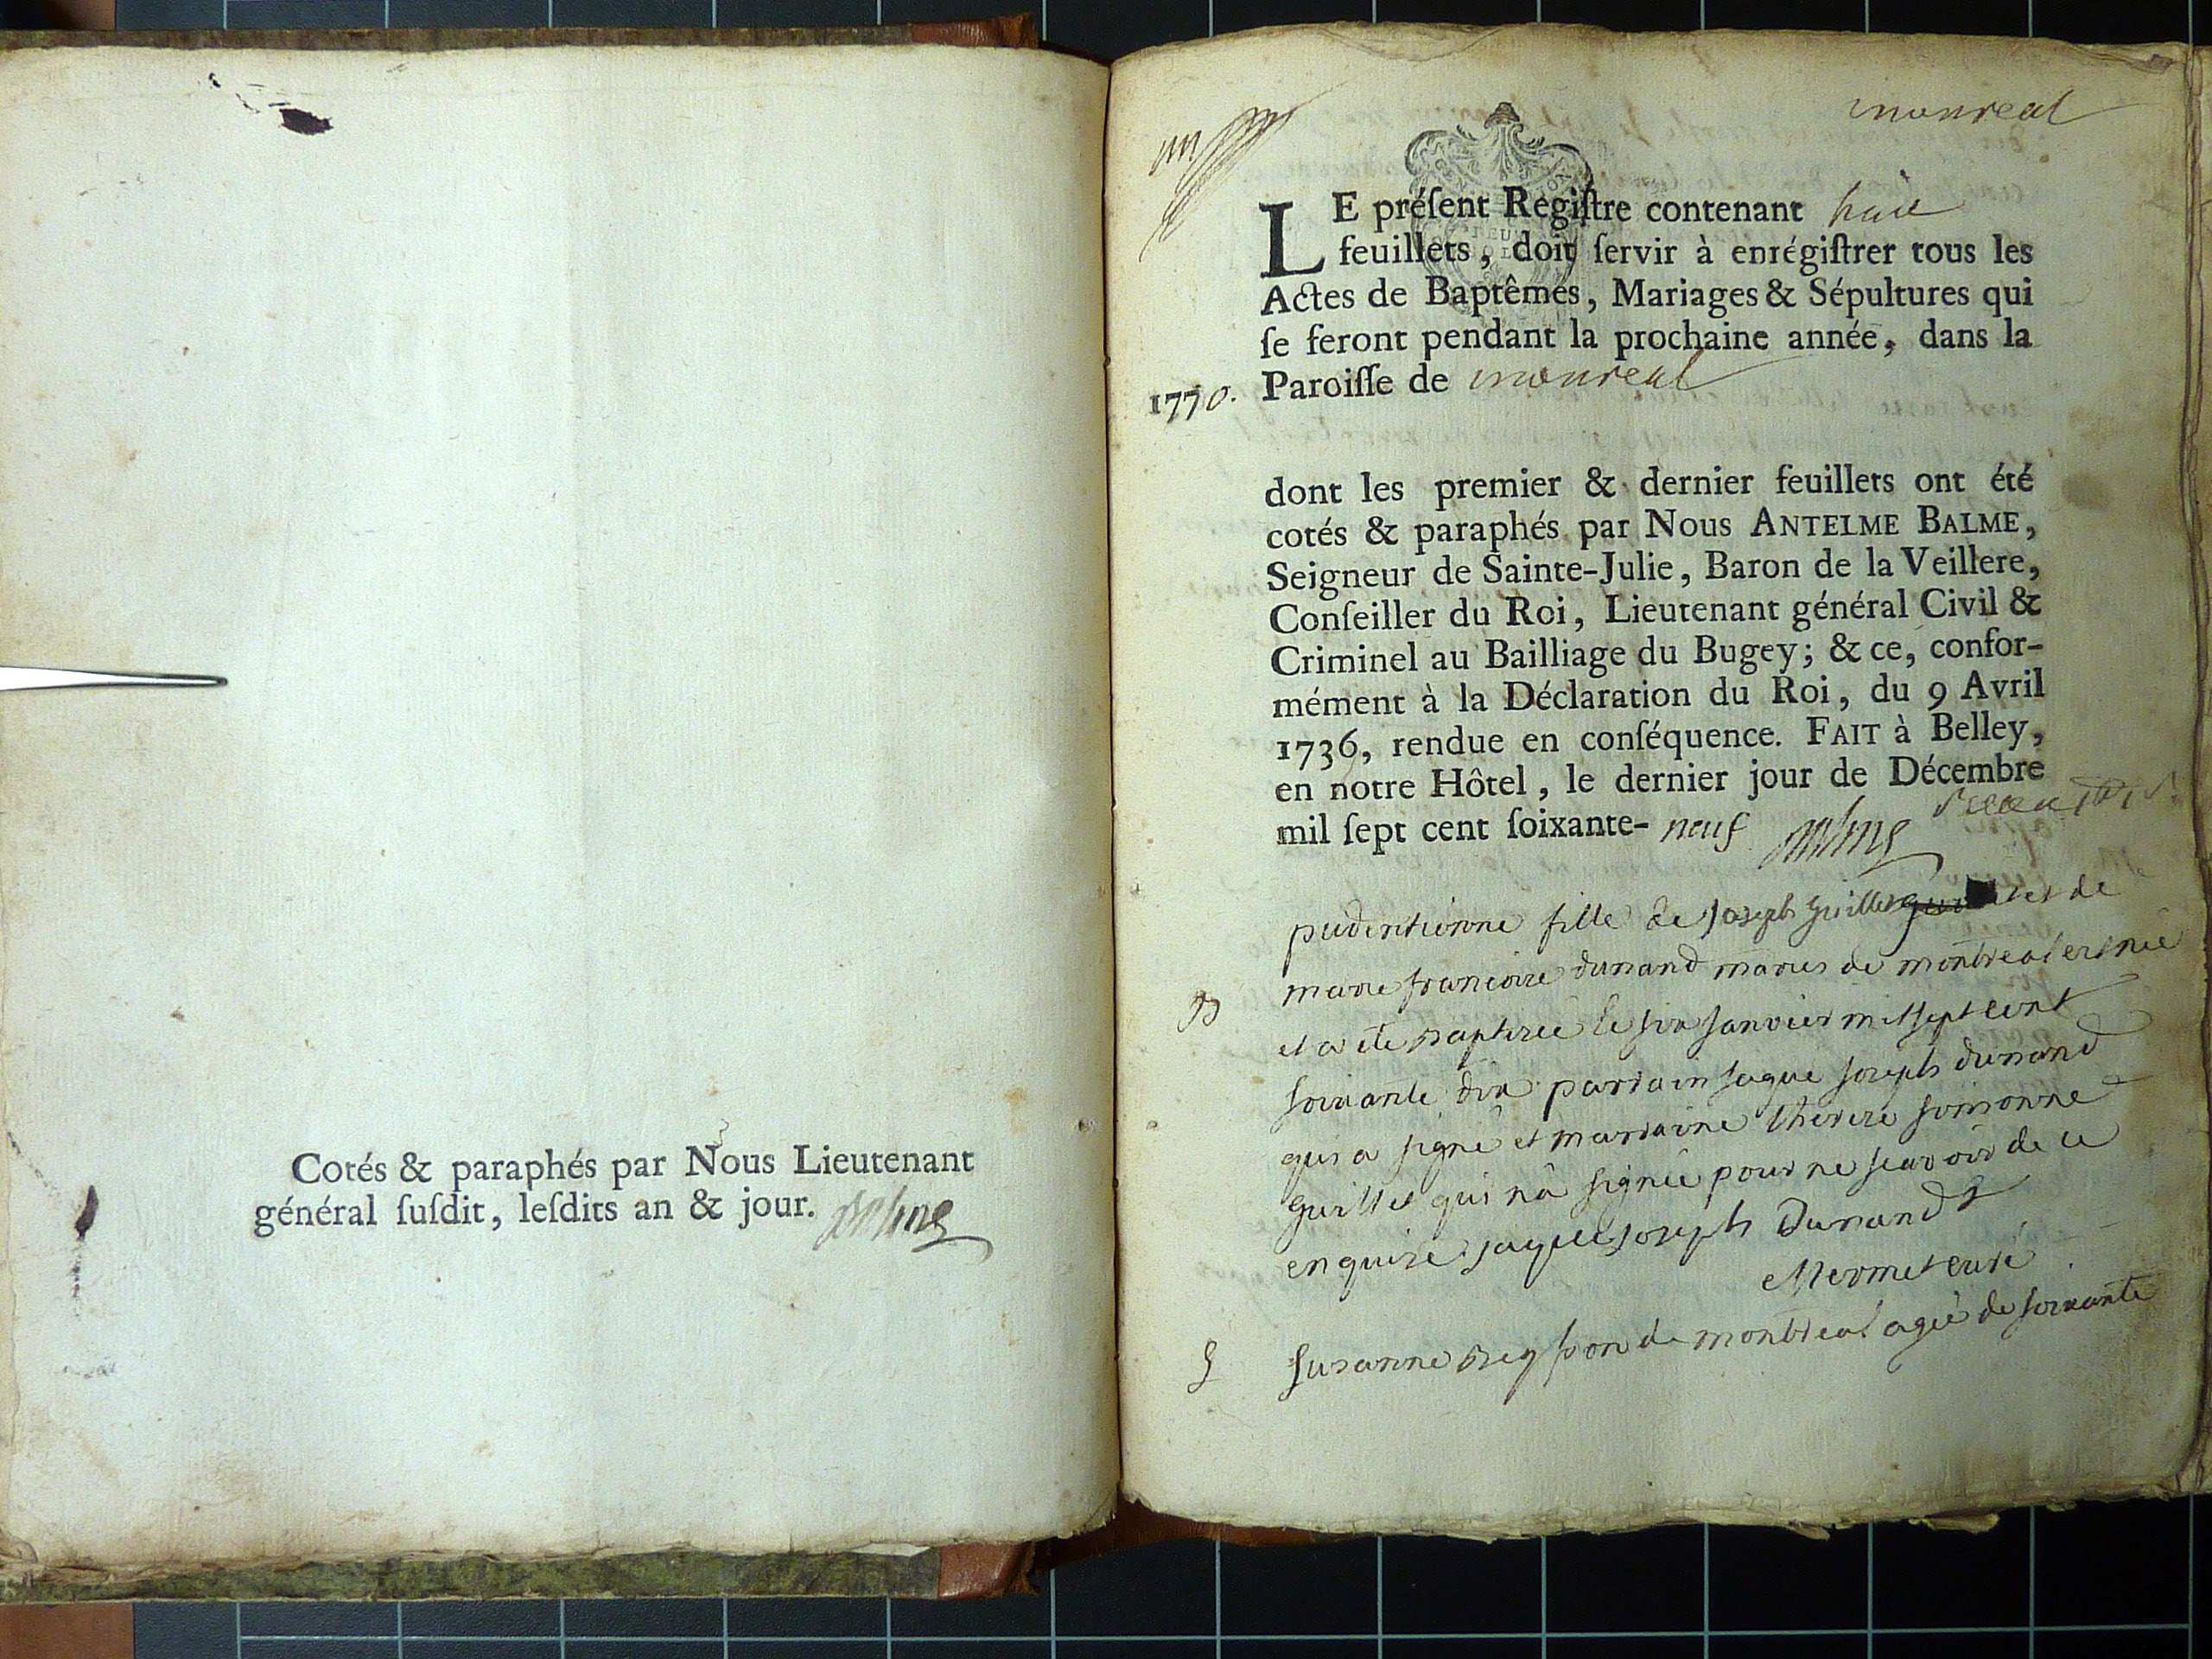 Cotés & paraphés par Nous Lieutenant
général ſuſdit, leſdits an & jour. Balme
monreal
LE préſent Regiſtre contenant huit
feuillets, doit ſervir à enrégiſtrer tous les
Actes de Baptêmes, Mariages & Sépultures qui
ſe feront pendant la prochaine année, dans la
1770. Paroiſſe de monreal
dont les premier & dernier feuillets ont été
cotés & paraphés par Nous ANTELME BALME,
Seigneur de Sainte-Julie, Baron de la Veillere,
Conſeiller du Roi, Lieutenant général Civil &
Criminel au Bailliage du Bugey; & ce, confor-
mément à la Déclaration du Roi, du 9 Avril
1736, rendue en conſéquence. FAIT à Belley,
en notre Hôtel, le dernier jour de Décembre
mil ſept cent ſoixante- neuf Balme
pudentienne fille de Joseph Guillet et de
marie francoise dunand mariés de montreal est née
B et a été baptisée le six janvier mil sept cent
soixante dix parrain jaque joseph dunand
qui a signé et marraine therese simonne
guillet qui n'a signée pour ne scavoir de ce
enquise jaque joseph Dunand
Mermet curé
S Susanne Reyson de montreal agée de soixante